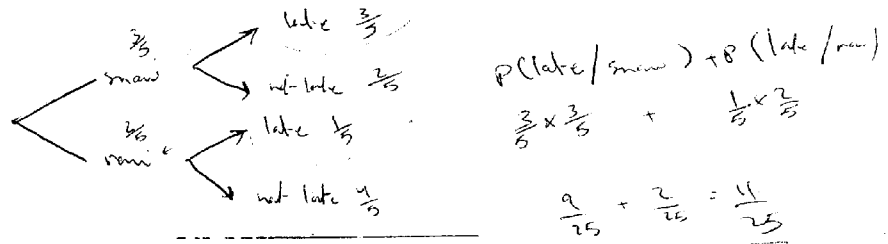 late 3/5
3/5
snow
not-late 2/5
2/5
rain
late 1/5
not late 4/5
P(late/snow) + P(late/rain)
3/5 × 3/5 + 1/5 × 2/5
9/25 + 2/25 = 11/25